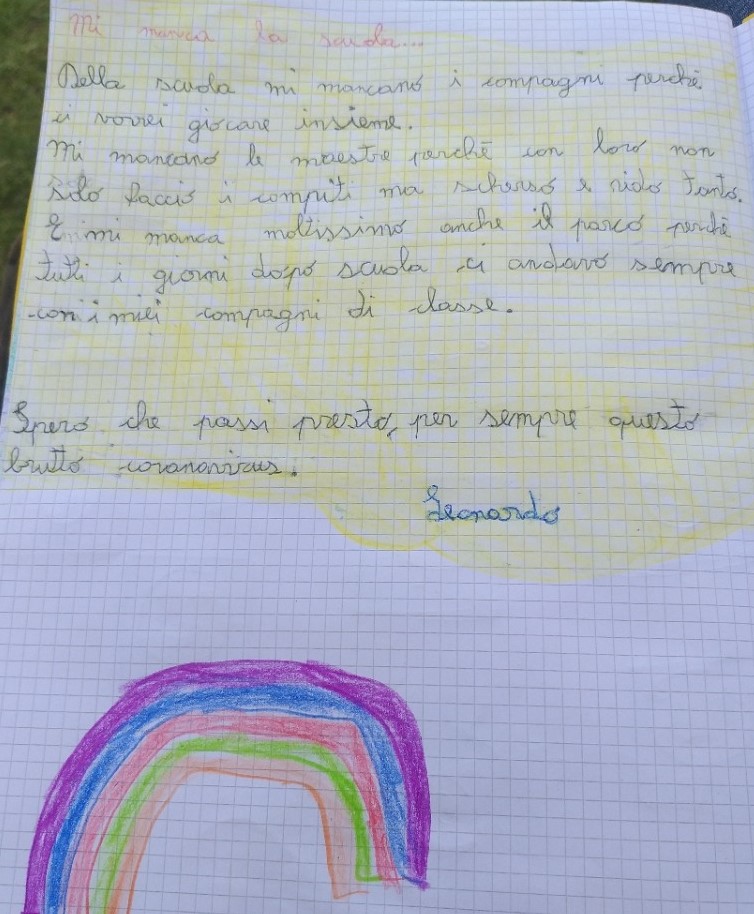 Mi manca la scuola...
Della scuola mi mancano i compagni perchè
ci vorrei giocare insieme.
Mi mancano le maestre perchè con loro non
solo faccio i compiti ma scherso e rido tanto.
E mi manca moltissimo anche il parco perchè
tutti i giorni dopo scuola ci andavo sempre
con i miei compagni di classe.
Spero che passi presto, per sempre questo
brutto coranonvirus.
Leonardo